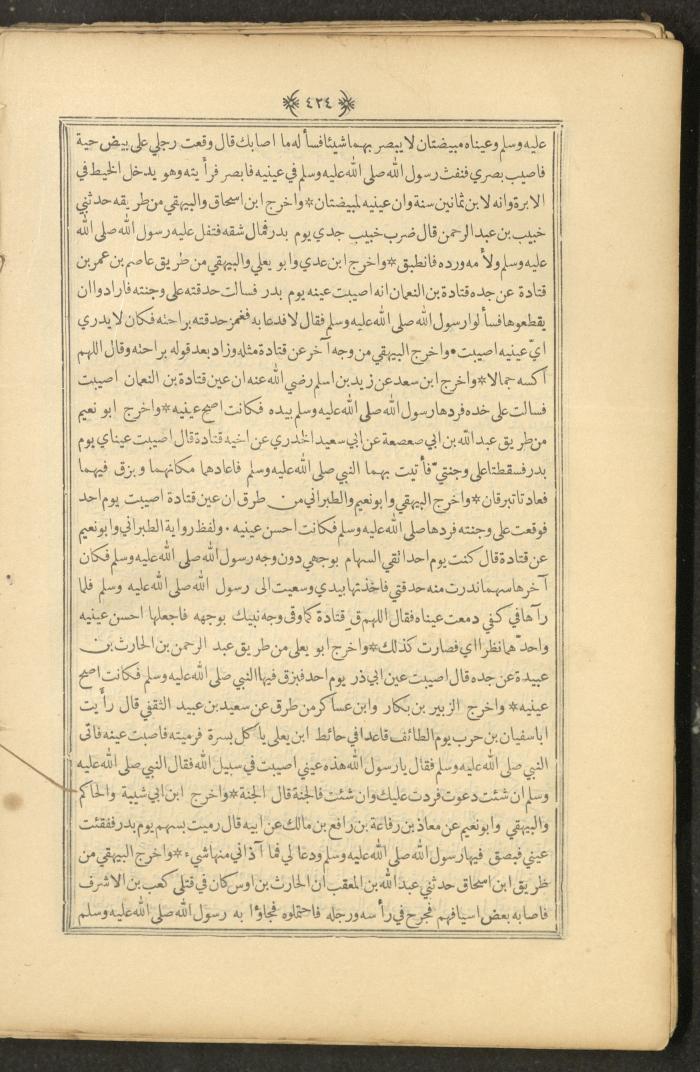 ٤٢٤
عليه وسلم وعيناه مبيضتان لا يبصر بهما شيئا فسأ له ما اصابك قال وقعت رجلي على بيض حية
فاصيب بصري فنفث رسول الله صلى الله عليه وسلم في عينيه فابصر فرأ يته وهو يدخل الخيط في
الابرة وانه لا بن ثمانين سنة وان عينيه لمبيضتان * واخرج ابن اسحاق والبيهقي من طريقه حدثني
خبيب بن عبد الرحمن قال ضرب خبيب جدي يوم بدر فمال شقه فتفل عليه رسول الله صلى الله
عليه وسلم ولأ مه ورده فانطبق * واخرج ابن عدي وابو يعلي والبيهقي من طريق عاصم بن عمر بن
قتادة عن جده قتادة بن النعمان انه اصيبت عينه يوم بدر فسالت حدقته على وجنته فارادوا ان
يقطعوها فسأ لوا رسول الله صلى الله عليه وسلم فقال لا فدعا به فغمز حدقته براحته فكان لا يدري
ايّ عينيه اصيبت • واخرج البيهقي من وجه آخر عن قتادة مثله وزاد بعد قوله براحته وقال اللهم
اكسه جمالا * واخرج ابن سعد عن زيد بن اسلم رضي الله عنه ان عين قتادة بن النعمان اصيبت
فسالت على خده فردها رسول الله صلى الله عليه وسلم بيده فكانت اصح عينيه * واخرج ابو نعيم
من طريق عبد الله بن ابي صعصعة عن ابي سعيد الخدري عن اخيه قتادة قال اصيبت عيناي يوم
بدر فسقطتا على وجنتيّ فأ تيت بهما النبي صلى الله عليه وسلم فاعادهما مكانهما و بزق فيهما
فعادتا تبرقان * واخرج البيهقي وابو نعيم والطبراني من طرق ان عين قتادة اصيبت يوم احد
فوقعت على وجنته فردها صلى الله عليه وسلم فكانت احسن عينيه . ولفظ رواية الطبراني وابو نعيم
عن قتادة قال كنت يوم احد اتقي السهام بوجهي دون وجه رسول الله صلى الله عليه وسلم فكان
آخرها سهما ندرت منه حدقتي فاخذتها بيدي وسعيت الى رسول الله صلى الله عليه وسلم فلما
رآها في كفي دمعت عيناه فقال اللهم ق قتادة كما وقى وجه نبيك بوجهه فاجعلها احسن عينيه
واحدّهما نظرا اي فصارت كذلك * واخرج ابو يعلى من طريق عبد الرحمن بن الحارث بن
عبيدة عن جده قال اصيبت عين ابي ذر يوم احد فبزق فيها النبي صلى الله عليه وسلم فكانت اصح
عينيه * واخرج الزبير بن بكار وابن عساكر من طرق عن سعيد بن عبيد الثقفي قال رأيت
ابا سفيان بن حرب يوم الطائف قاعدا في حائط ابن يعلى ياكل بسرة فرميته فاصبت عينه فاتى
النبي صلى الله عليه وسلم فقال يا رسول الله هذه عيني اصيبت في سبيل الله فقال النبي صلى الله عليه
وسلم ان شئت دعوت فردت عليك وان شئت فالجنة قال الجنة * واخرج ابن ابي شيبة والحاكم
والبيهقي وابو نعيم عن معاذ بن رفاعة بن رافع بن مالك عن ابيه قال رميت بسهم يوم بدر ففقئت
عيني فبصق فيها رسول الله صلى الله عليه وسلم ودعا لي فما آذاني منها شيء * واخرج البيهقي من
طريق ابن اسحاق حدثني عبد الله بن المعقب ان الحارث بن اوس كان في قتلى كعب بن الاشرف
فاصابه بعض اسيافهم فجرح في رأ سه ورجله فاحتملوه فجاؤا به رسول الله صلى الله عليه وسلم